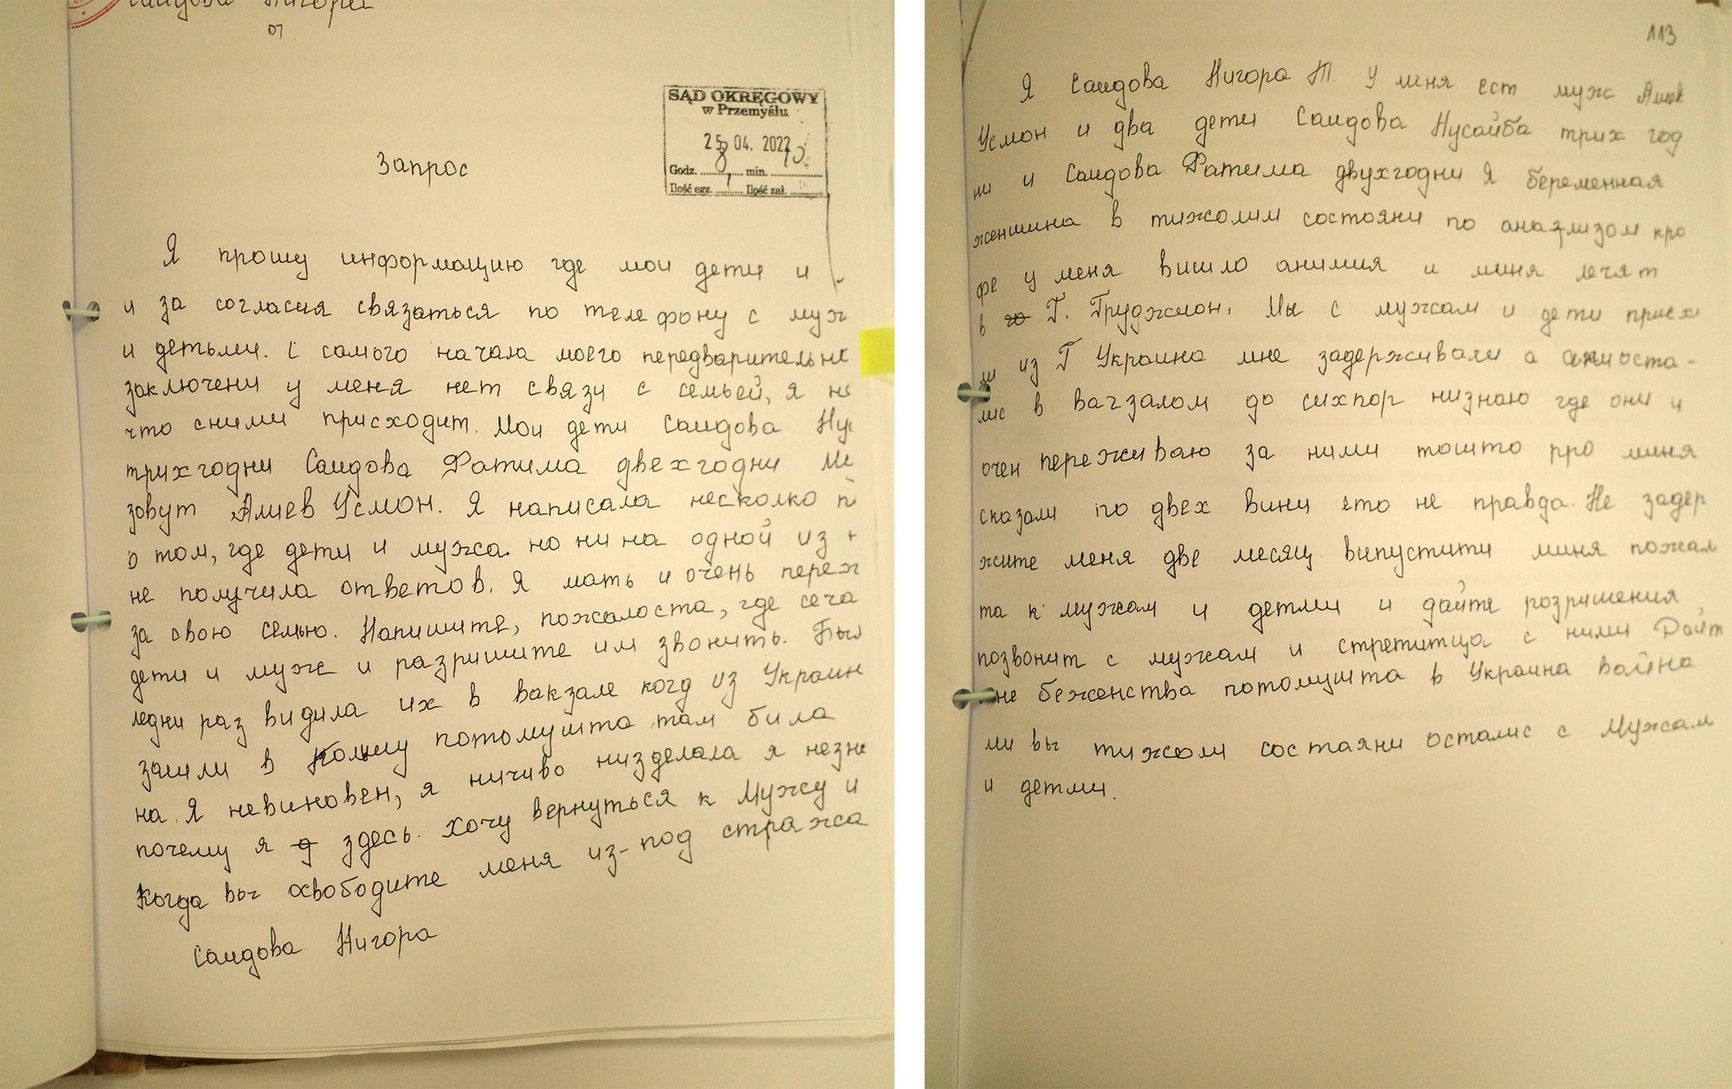 Саидова Нигора
07
SĄD OKRĘGOWY
w Przemyślu
25 04. 2022
Godz. 8, min. 10
Ilość egz. Ilość zał.
Запрос
Я прошу информацию где мои дети и
и за согласия связаться по телефону с муж
и детьми. С самого начала моего передварительно
заключени у меня нет связу с семьей, я не
что сними присходит. Мои дети Саидова Нус
трихгодни Саидова Фатима двехгодни Ме
зовут Алиев Усмон. Я написала несколко п
о том, где дети и мужа. но ни на одной из н
не получила ответов. Я мать и очень переж
за свою семью. Напишите, пожалоста, где сеча
дети и муж и разришите им звонить. Был
ледни раз видила их в вакзале когд из Украин
зашли в Полшу потомушта там била
на. Я невиновен, я ничиво низделала я незна
почему я здесь. Хочу вернуться к Мужу и
Когда вы освободите меня из-под стража
Саидова Нигора
113
Я Саидова Нигора Т. У меня ест муж Алиев
Усмон и два дети Саидова Нусайба трих год
ни и Саидова Фатима двухгодни Я беременная
женшина в тижолим состояни по анализом кро
фе у меня вишло анимия и миня лечят
в Г. Груджион. Мы с мужам и дети приех
ли из Г Украина мне задерживали а они оста-
лис в вагзалом до сихпор низнаю где они и
очен переживаю за ними тошто про миня
сказали по двех вини ето не правда. Не задер
жите меня две месяц. випустити миня пожал
та к мужам и детми и дайте розришения
позвонит с мужам и стретитца с ними Дайт
мне беженства потомушта в Украина война
ми вы тижоли состаяни осталис с Мужам
и детми.